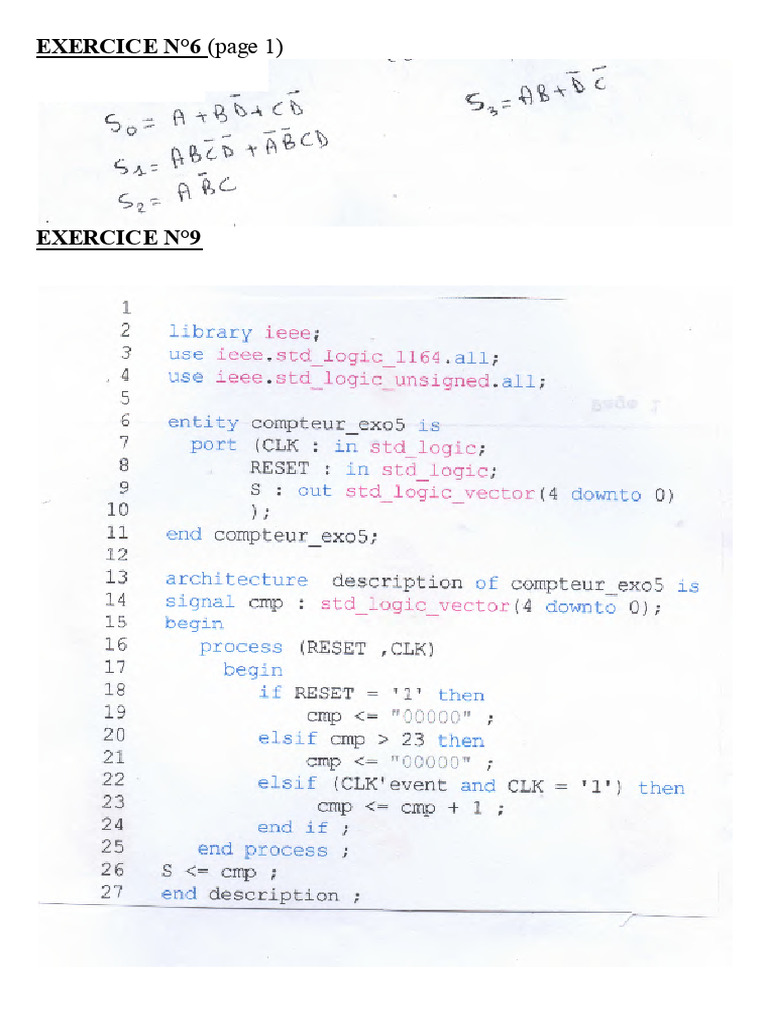 EXERCICE N°6 (page 1)
S₀ = A + B D̅ + C D̅
S₃ = AB + D̅ C̅
S₁ = A B C̅ D̅ + A̅ B̅ C D
S₂ = A B̅ C
EXERCICE N°9
1
2 library ieee;
3 use ieee.std_logic_1164.all;
4 use ieee.std_logic_unsigned.all;
5
6 entity compteur_exo5 is
7 port (CLK : in std_logic;
8 RESET : in std_logic;
9 S : out std_logic_vector(4 downto 0)
10 );
11 end compteur_exo5;
12
13 architecture description of compteur_exo5 is
14 signal cmp : std_logic_vector(4 downto 0);
15 begin
16 process (RESET ,CLK)
17 begin
18 if RESET = '1' then
19 cmp <= "00000" ;
20 elsif cmp > 23 then
21 cmp <= "00000" ;
22 elsif (CLK'event and CLK = '1') then
23 cmp <= cmp + 1 ;
24 end if ;
25 end process ;
26 S <= cmp ;
27 end description ;